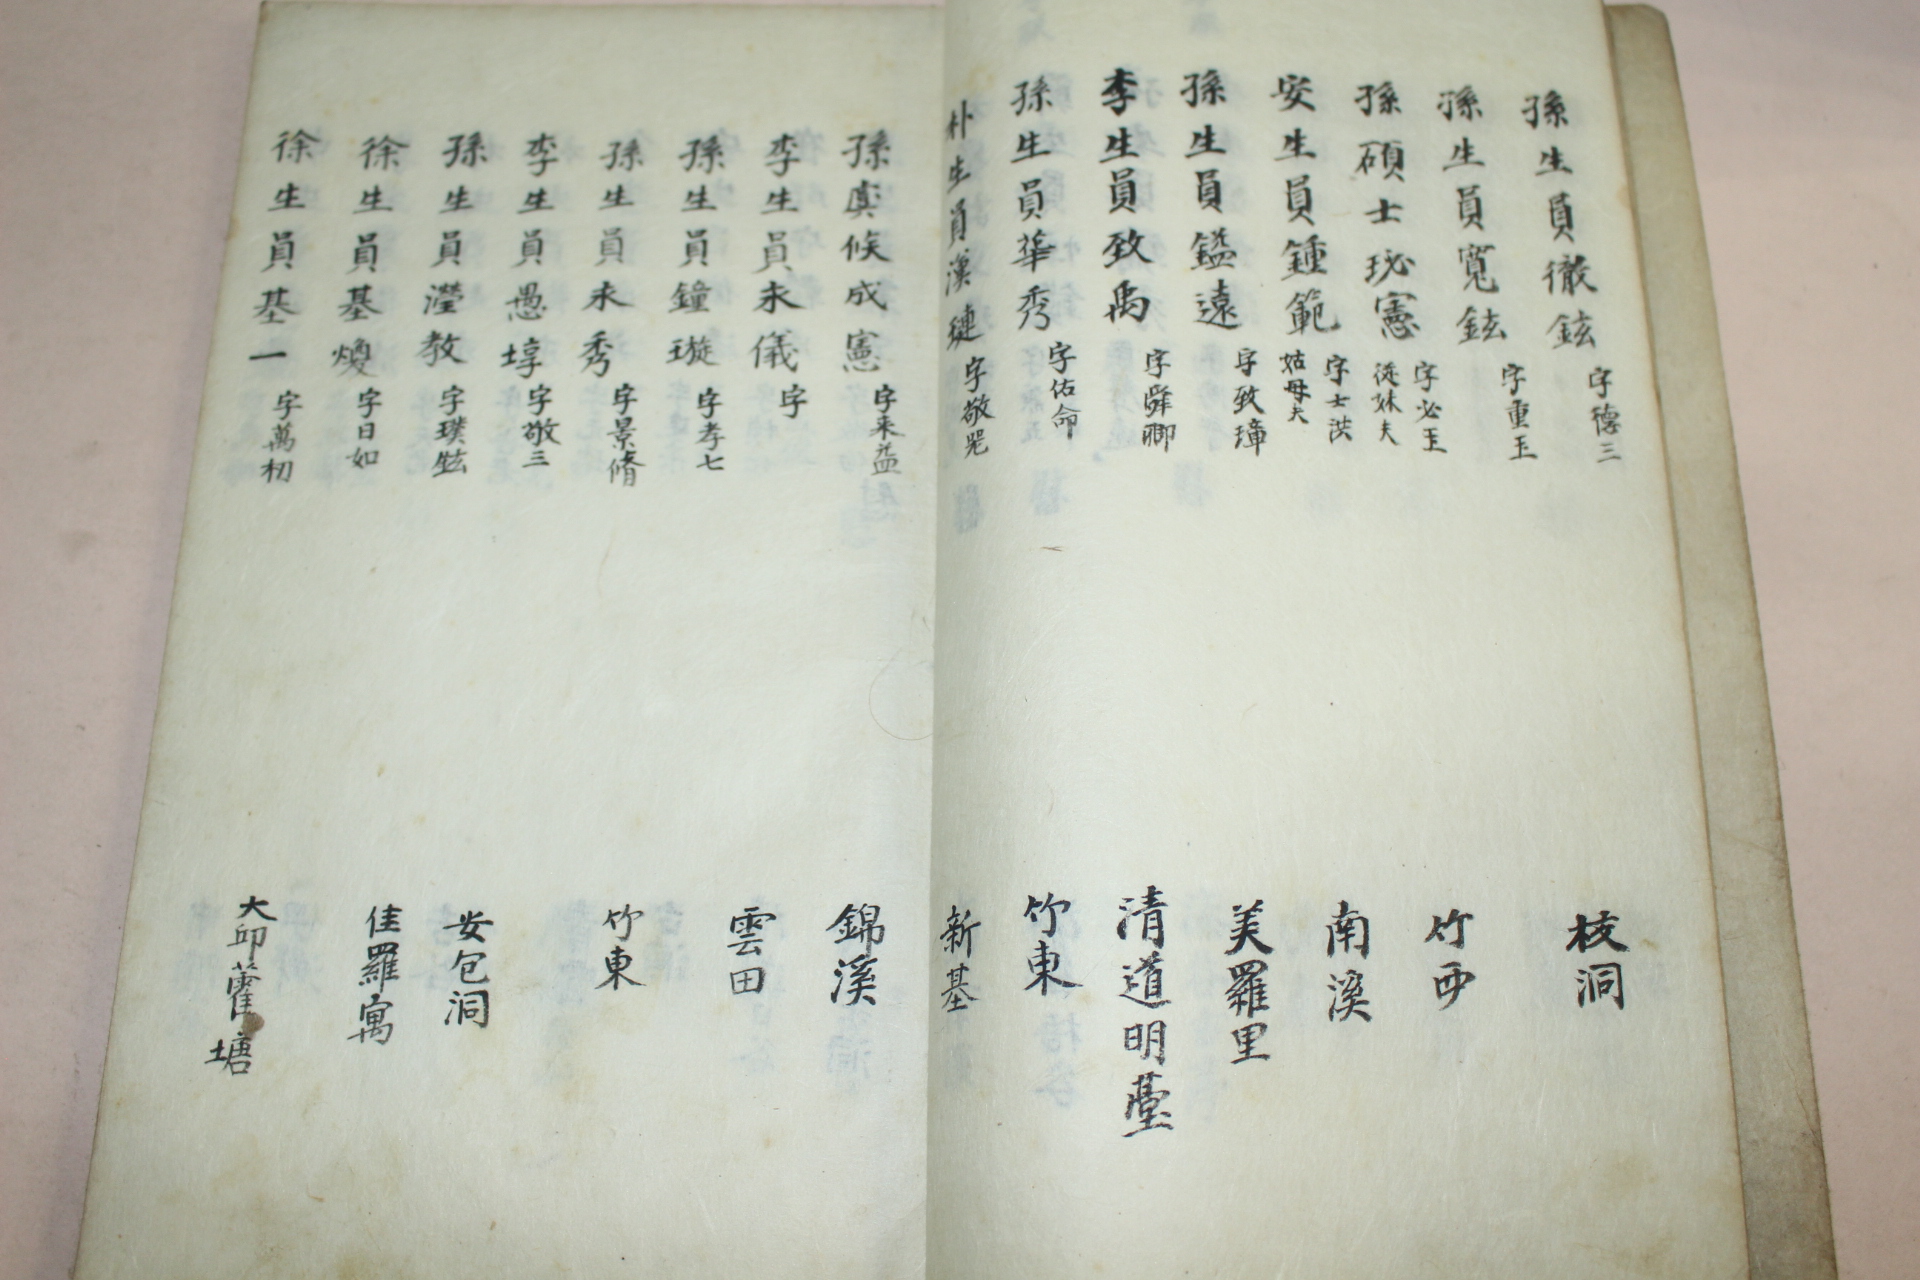 孫生員徹鉉 字德三 枝洞
孫生員寬鉉 字重玉
孫碩士珌憲 字必玉 從妹夫 竹西
安生員鍾範 字士洪 姑母夫 南溪
孫生員鎰遠 字致璋 美羅里
李生員致禹 字舜卿 清道明臺
孫生員華秀 字佑命 竹東
朴生員漢璉 字敬
新基
孫虞候成憲 字來益 錦溪
李生員永儀 字 雲田
孫生員鐘璇 字孝七
孫生員永秀 字景脩 竹東
李生員愚埻 字敬三
孫生員瀅教 字璞
安包洞
徐生員基煥 字日如 佳羅寓
徐生員基一 字萬初 大邱藿塘